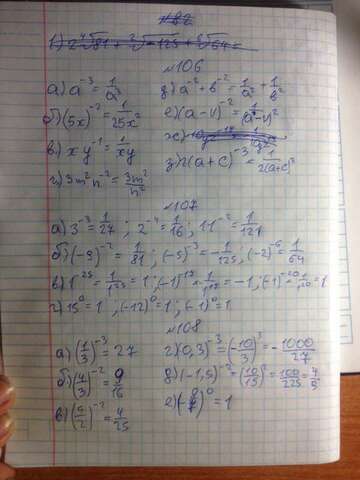 №82
1) 2∜81 + ∛-125 + ⁶√64 =
№106
а) a⁻³ = 1/a³ д) a⁻² + b⁻² = 1/a² + 1/b²
б) (5x)⁻² = 1/25x² е) (a-b)⁻² = 1/(a-b)²
в) xy⁻¹ = 1/xy ж)
г) 3m²n⁻² = 3m²/n² з) 2(a+c)⁻³ = 1/2(a+c)²
№107
а) 3⁻³ = 1/27 ; 2⁻⁴ = 1/16 ; 11⁻² = 1/121
б) (-9)⁻² = 1/81 ; (-5)⁻³ = -1/125 ; (-2)⁻⁶ = 1/64
в) 1⁻²⁵ = 1/1²⁵ = 1 ; (-1)⁻¹⁷ = 1/1¹⁷ = -1 ; (-1)⁻²⁰ = 1/1²⁰ = 1
г) 15⁰ = 1 ; (-12)⁰ = 1 ; (-1)⁰ = 1
№108
а) (1/3)⁻³ = 27 г) (0,3)⁻³ = (-10/3)³ = -1000/27
б) (4/3)⁻² = 9/16 д) (-1,5)⁻² = (10/15)² = 100/225 = 4/9
в) (5/2)⁻² = 4/25 е) ⁰ = 1